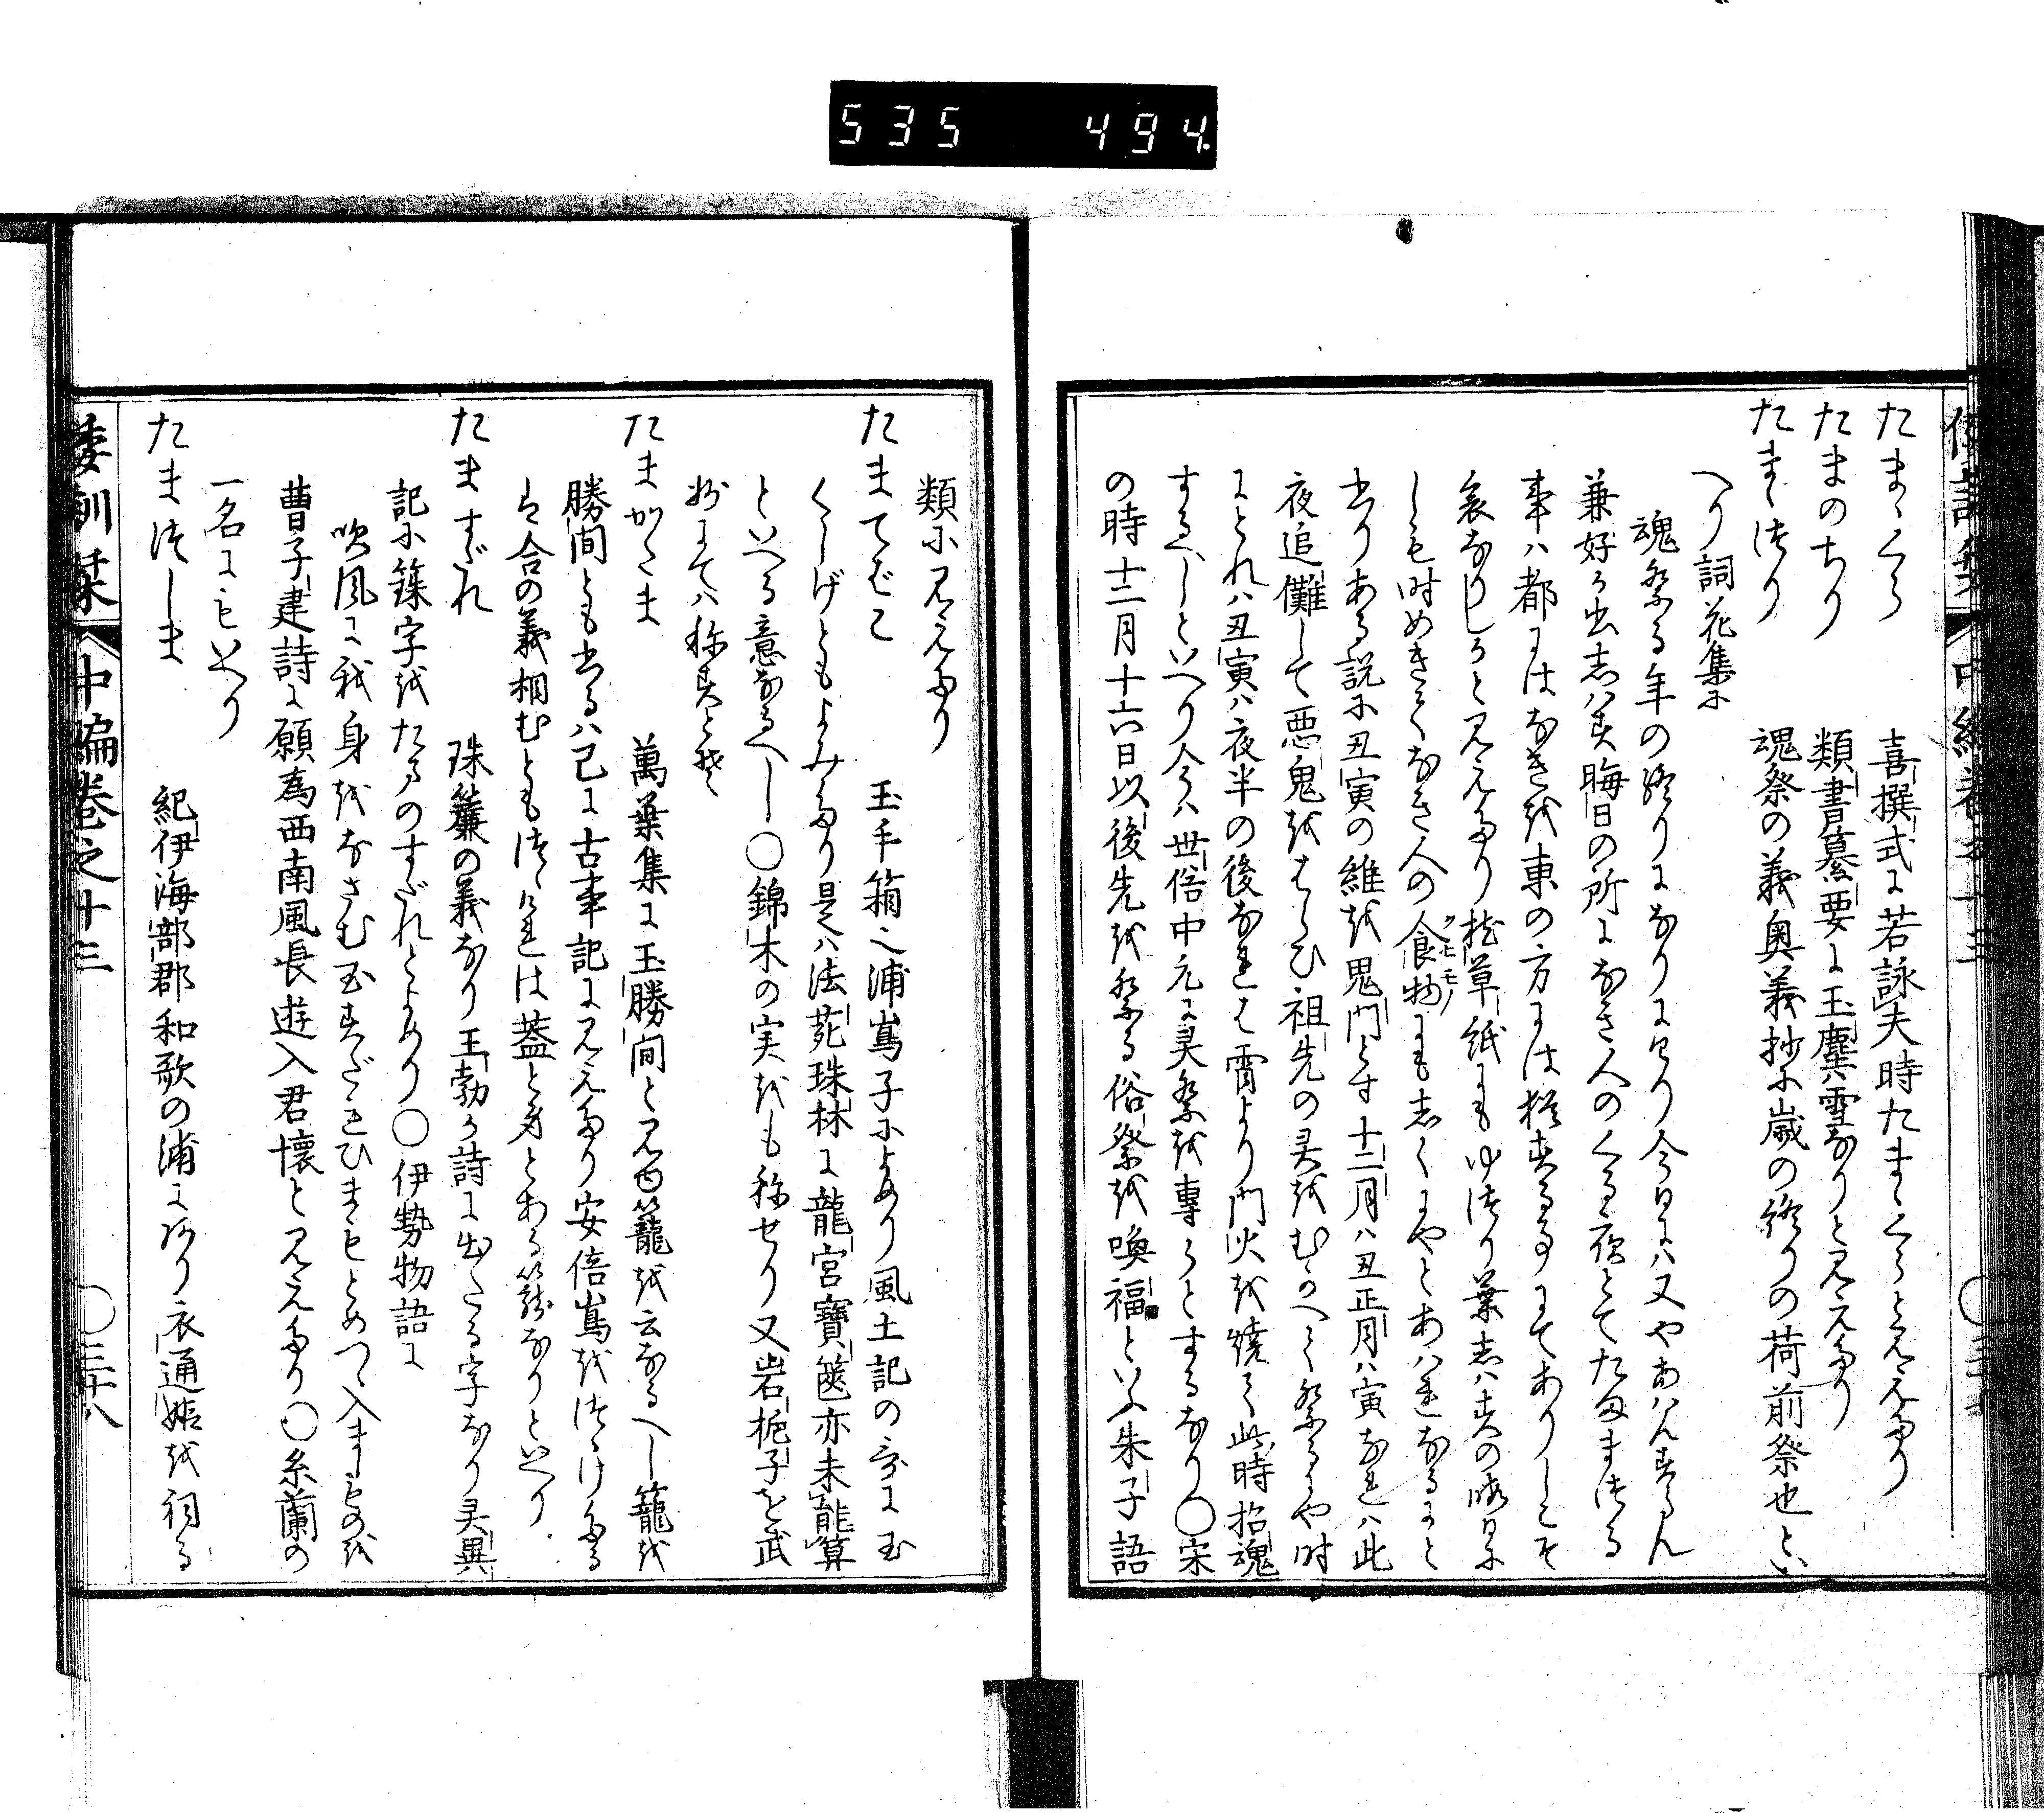 535 494.
たまくら 喜撰式に若詠夫時たまくらと見えたり
たまのちり 類書纂要に玉塵ハ雪なりと見えたり
たま祭り 魂祭の義奥義抄に歳の終りの荷前祭也とい
へり詞花集に
魂祭る年の終りになりにけり今日にハ又やあはんすらん
兼好か出志ハす晦日の所になき人のくる夜とてたままつる
事ハ都にはなきを東の方には猶する事にてありしこそ
哀なりしかと見えたり枕草紙にもゆつり葉志ハすの晦日に
しも時めきてなき人の食物にも志くにやとあハれなるにと
出りある説に丑寅の維を鬼門とす十二月ハ丑正月ハ寅なれハ此
夜追儺して悪鬼をはらひ祖先の霊をむかへて祭るにや時
にとれハ丑寅ハ夜半の後なれは宵より門火を焼て此時招魂
すへしといへり今ハ世俗中元に霊祭を専らとするなり〇宋
の時十二月十六日以後先を祭る俗祭を喚福といふ朱子語
類に見えたり
たまてばこ 玉手箱之浦島子によめり風土記の哥に玉
くしげともよみたり是ハ法苑珠林に龍宮寶篋亦未能算
といへる意なるへし〇錦木の実をも称せり又岩梔子を武
州にてハ称すとそ
たまかつま 萬葉集に玉勝間と見ゆ籠を云なるへし籠を
勝間とも出るハ已に古事記に見えたり安倍島をつゝけたる
は合の義相むともつゝけるは蓋と身とある籠なりといへり
たますだれ 珠簾の義なり王勃か詩に出たる字なり霊異
記に𥶡字をたまのすだれとよめり〇伊勢物語に
吹風に我身をなさむ玉すだれひまもとめつゝ入ましものを
曹子建詩に願為西南風長遊入君懐と見えたり〇糸蘭の
一名にもいへり
たまつしま 紀伊海部郡和歌の浦にあり衣通姫を祠る
倭訓栞 中編巻之十三 〇三十八